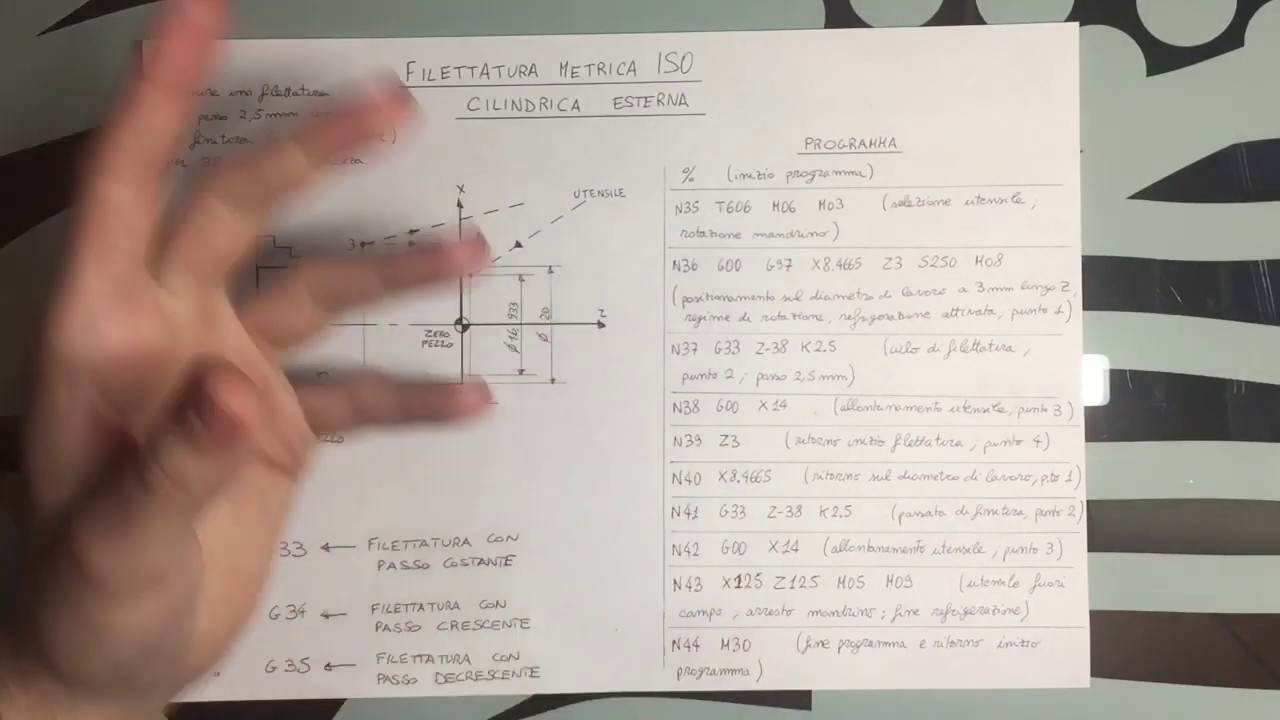 FILETTATURA METRICA ISO
CILINDRICA ESTERNA
una filettatura
passo 2,5mm
finitura
X
UTENSILE
3
Z
ZERO
PEZZO
Ø 16,933
Ø 20
33 ← FILETTATURA CON
PASSO COSTANTE
G34 ← FILETTATURA CON
PASSO CRESCENTE
G35 ← FILETTATURA CON
PASSO DECRESCENTE
PROGRAMMA
% (inizio programma)
N35 T606 M06 M03 (selezione utensile;
rotazione mandrino)
N36 G00 G97 X8.4665 Z3 S250 M08
(posizionamento sul diametro di lavoro a 3mm lungo Z,
regime di rotazione, refrigerazione attivata, punto 1)
N37 G33 Z-38 K2.5 (ciclo di filettatura,
punto 2; passo 2,5mm)
N38 G00 X14 (allontanamento utensile, punto 3)
N39 Z3 (ritorno inizio filettatura; punto 4)
N40 X8.4665 (ritorno sul diametro di lavoro, p.to 1)
N41 G33 Z-38 K2.5 (passata di finitura, punto 2)
N42 G00 X14 (allontanamento utensile; punto 3)
N43 X125 Z125 M05 M09 (utensile fuori
campo, arresto mandrino; fine refrigerazione)
N44 M30 (fine programma e ritorno inizio
programma)